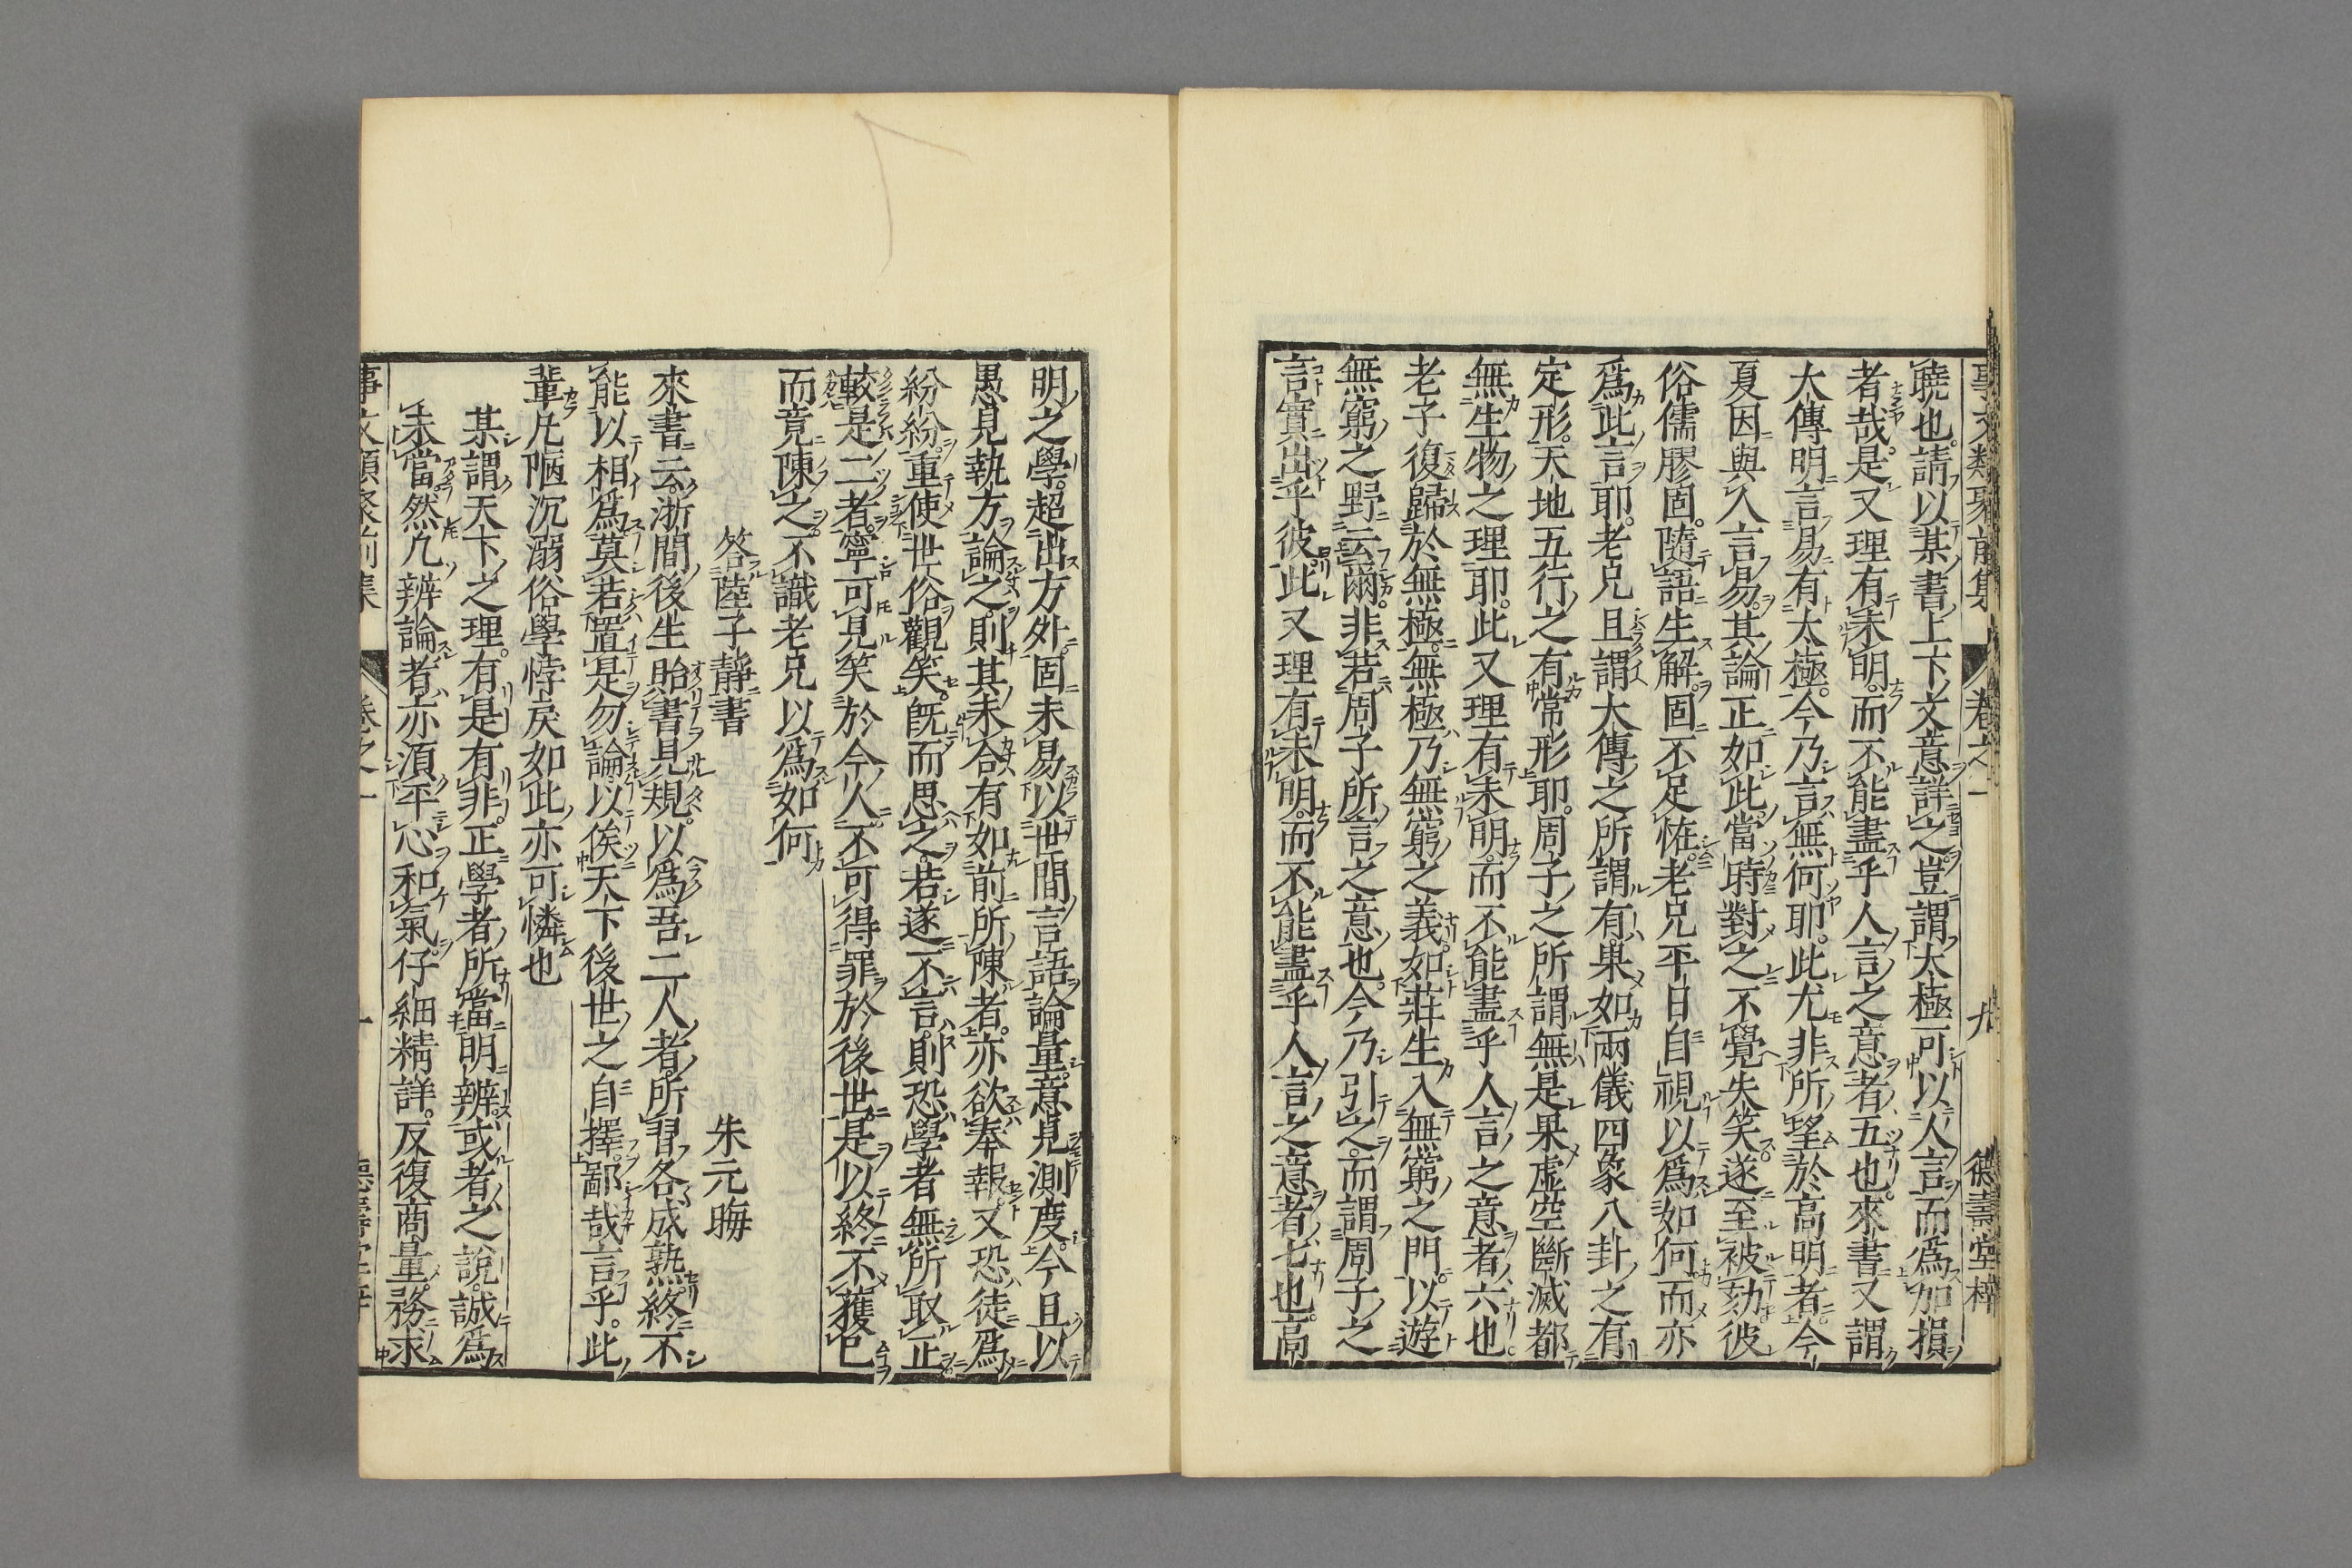 事文類聚前集 卷之一 九 德壽堂梓
曉也請以某書上下文意詳之豈謂太極可以人言而爲加損
者哉是又理有未明而不能盡乎人言之意者五也來書又謂
大傳明言易有太極今乃言無何耶此尤非所望於高明者今
夏因與人言易其論正如此當時對之不覺失笑遂至被劾彼
俗儒膠固隨語生解固不足恠老兄平日自視以爲如何而亦
爲此言耶老兄且謂大傳之所謂有果如兩儀四象八卦之有
定形天地五行之有常形耶周子之所謂無是果虛空斷滅都
無生物之理耶此又理有未明而不能盡乎人言之意者六也
老子復歸於無極無極乃無窮之義如莊生入無窮之門以遊
無窮之野云爾非若周子所言之意也今乃引之而謂周子之
言實出乎彼此又理有未明而不能盡乎人言之意者七也高
明之學超出方外固未易以世間言語論量意見測度今且以
愚見執方論之則其未合有如前所陳者亦欲奉報又恐徒爲
紛紛重使世俗觀笑既而思之若遂不言則恐學者無所取正
較是二者寧可見笑於今人不可得罪於後世是以終不獲已
而竟陳之不識老兄以爲如何
答陸子靜書 朱元晦
來書云浙間後生貽書見規以爲吾二人者所習各成熟終不
能以相爲莫若置是勿論以俟天下後世之自擇鄙哉言乎此
輩凡陋沉溺俗學悖戾如此亦可憐也
某謂天下之理有是有非正學者所當明辨或者之說誠爲
未當然凡辨論者亦須平心和氣仔細精詳反復商量務求
事文類聚前集 卷之一